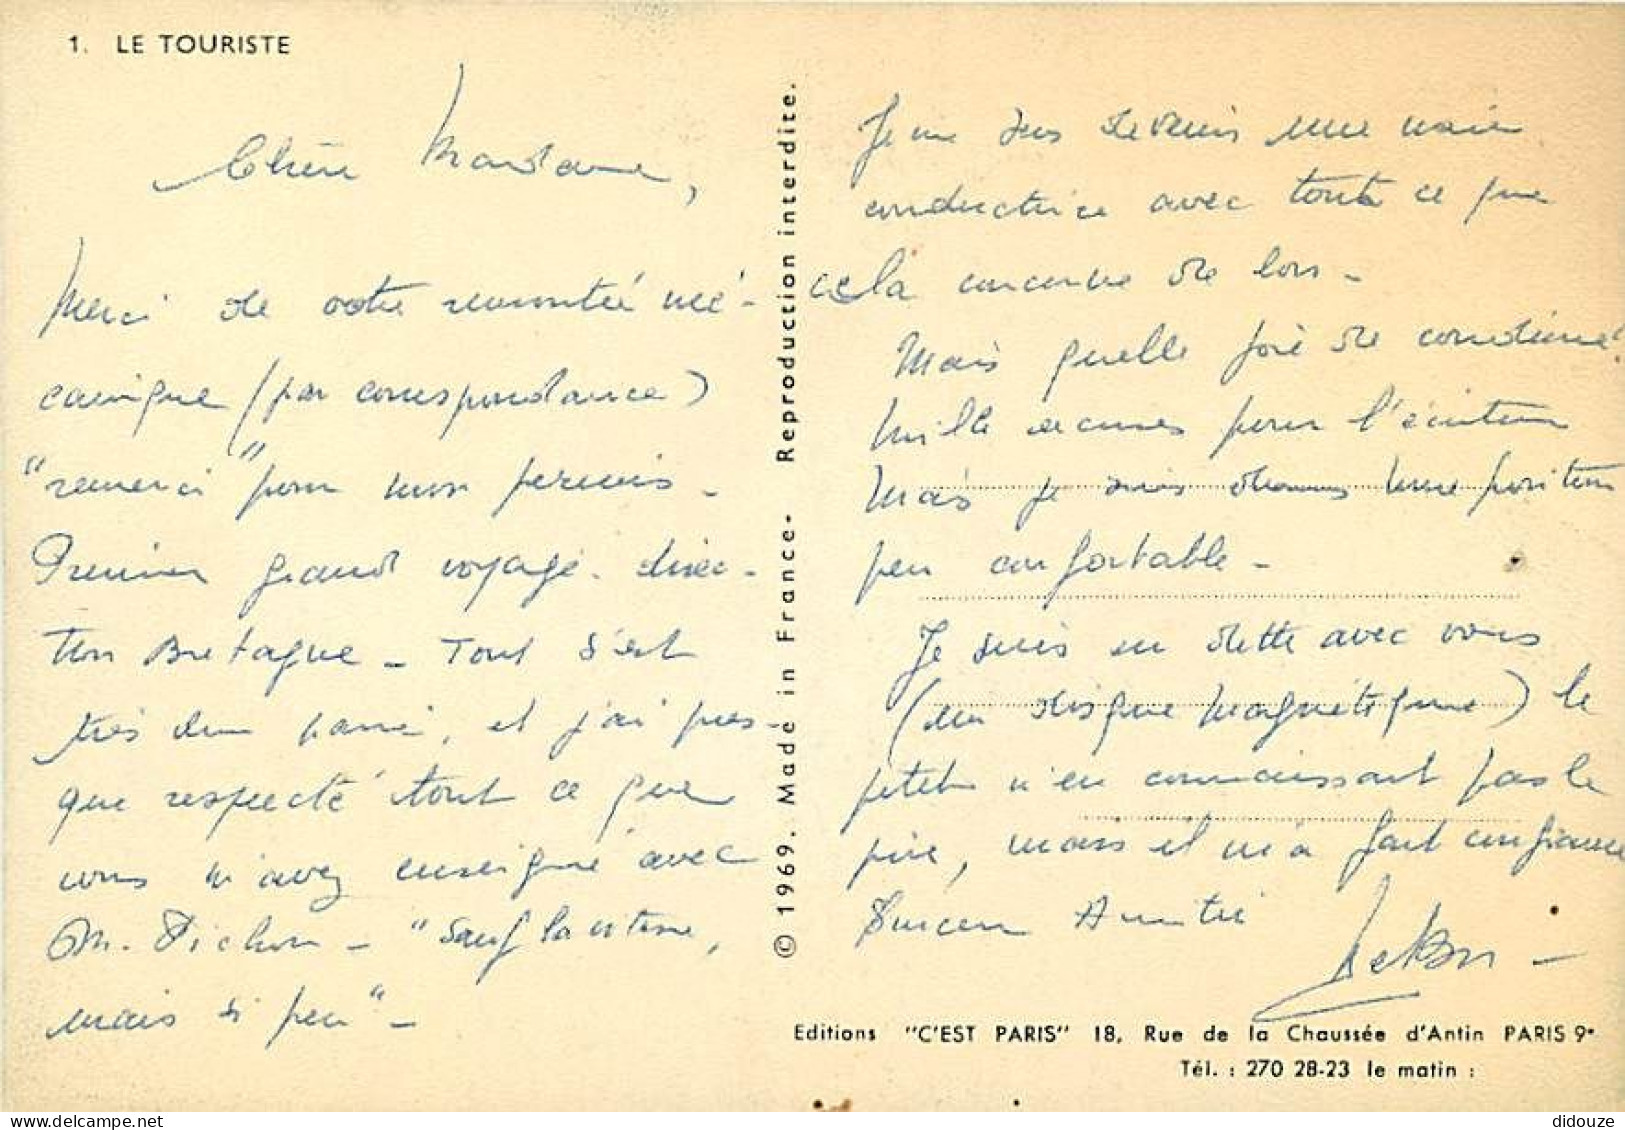 1. LE TOURISTE
Chère Madame,
Merci de votre mé-
canique (par correspondance)
"remerci" pour mon permis.
Premier grand voyage. direc-
tion Bretagne - Tout s'est
très bien passé, et j'ai pres-
que respecté tout ce que
vous m'avez enseigné avec
M. Pichon - "Sauf la vitesse,
mais si peu" -
© 1969. Made in France. Reproduction interdite.
Je me suis devenue une vraie
conductrice avec tout ce que
cela concerne de lois -
Mais quelle joie de conduire!
Mille excuses pour l'écriture
Mais je suis dans une position
peu confortable -
Je suis en dette avec vous
(un disque magnétique) le
petit n'en connaissant pas le
prix, mais il m'a fait confiance
Sincère Amitié
Editions "C'EST PARIS" 18, Rue de la Chaussée d'Antin PARIS 9e
Tél. : 270 28-23 le matin :
didouze